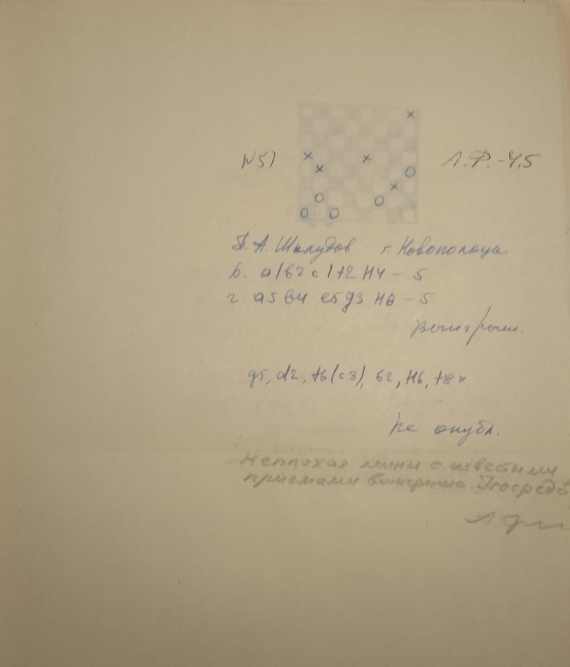 N51 Л.Ф.-4,5
П. А. Шклудов г. Новополоцк
Б. a1 b2 c1 f2 H4 - 5
г. a5 b4 e5 g3 H8 - 5
Выигрыш.
g5, d2, f6 (c3), b2, H6, f8 x
Не опубл.
Неплохая мины с известными
приемами выигрыша.